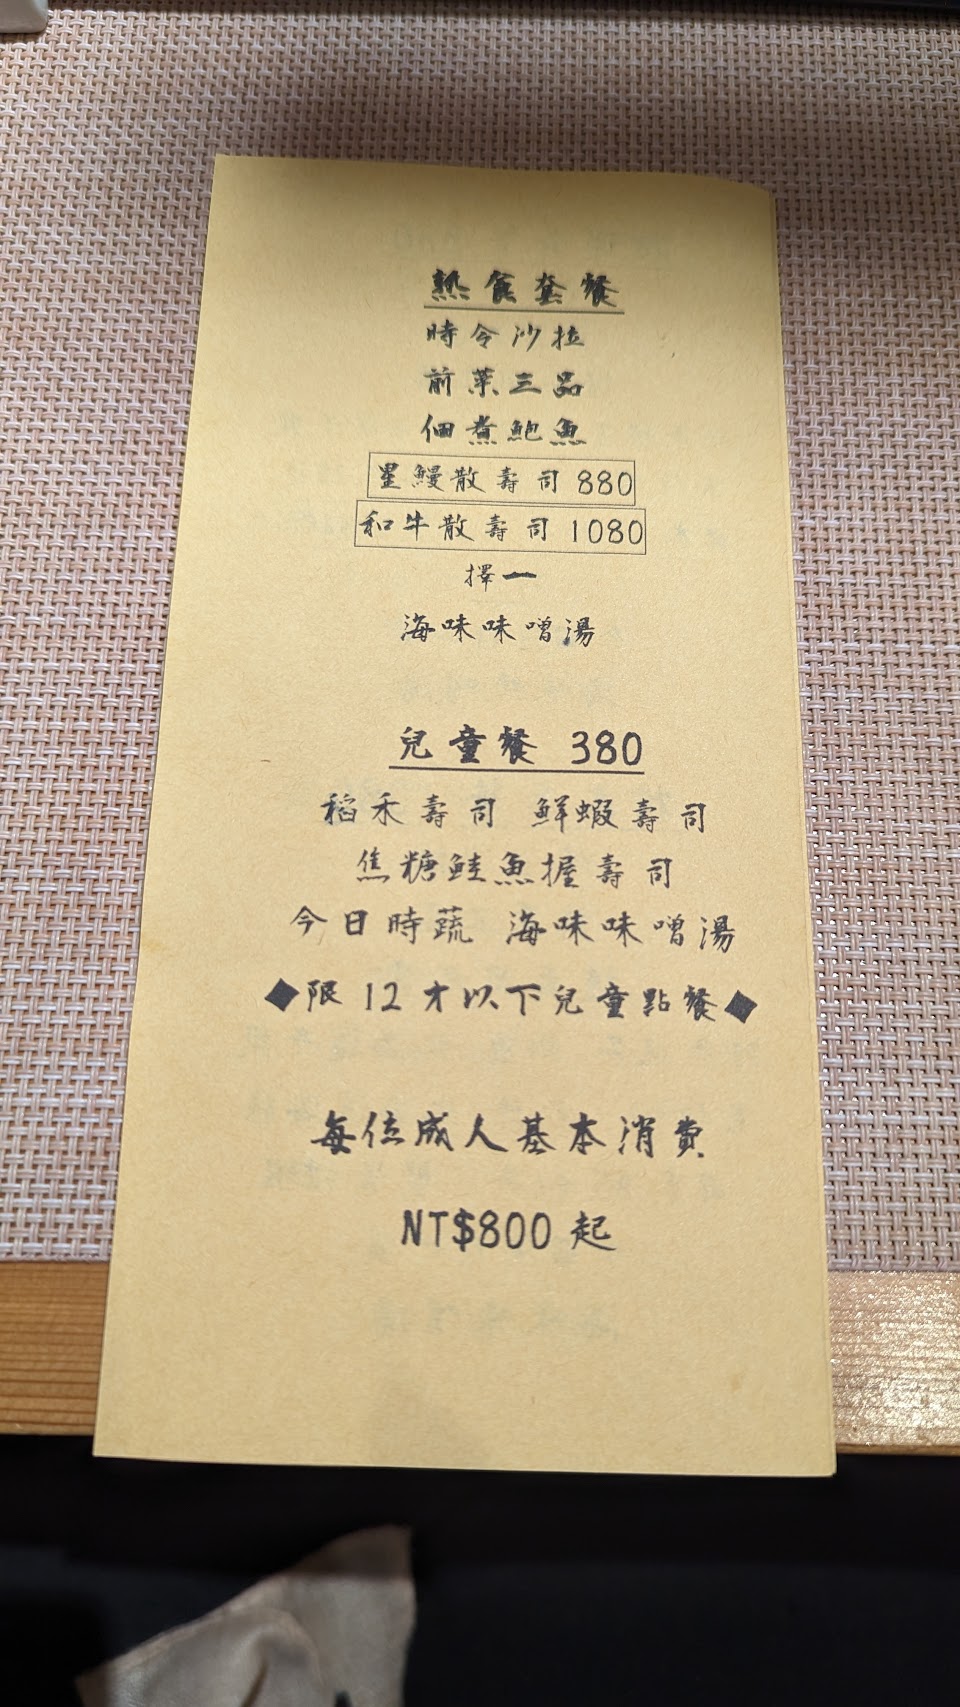 熟食套餐
時令沙拉
前菜三品
佃煮鮑魚
星鰻散壽司 880
和牛散壽司 1080
擇一
海味味噌湯
兒童餐 380
稻禾壽司 鮮蝦壽司
焦糖鮭魚握壽司
今日時蔬 海味味噌湯
◆限 12 才以下兒童點餐◆
每位成人基本消費
NT$800 起